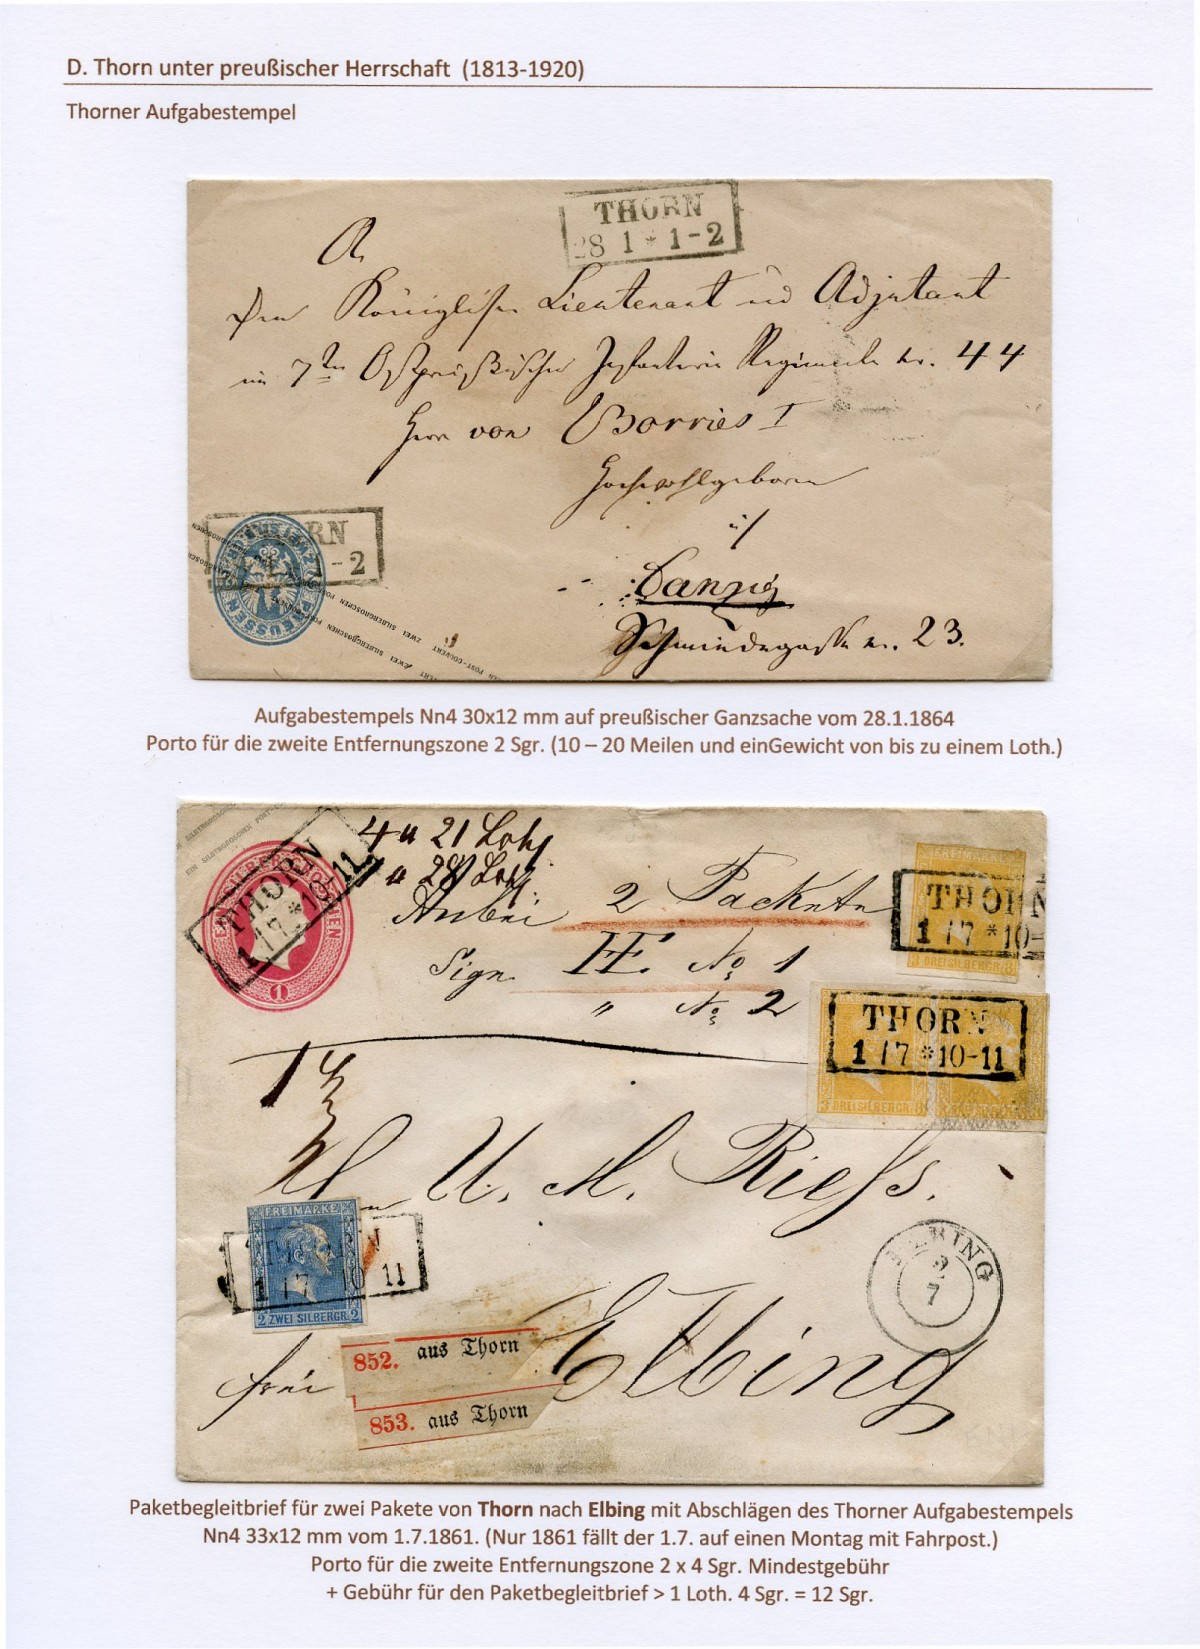 D. Thorn unter preußischer Herrschaft (1813-1920)
Thorner Aufgabestempel
THORN
28 1 * 1-2
An
Den Königlichen Lieutenant und Adjutant
im 7ten Ostpreußischen Infanterie Regiments Nr. 44
Herrn von Borries I
Hochwohlgeboren
in
Danzig
Schmiedegasse Nr. 23.
RN
-2
PREUSSEN
POST-COUVERT ZWEI SILBERGROSCHEN
Aufgabestempels Nn4 30x12 mm auf preußischer Ganzsache vom 28.1.1864
Porto für die zweite Entfernungszone 2 Sgr. (10 – 20 Meilen und einGewicht von bis zu einem Loth.)
EIN SILBERGROSCHEN POST-
THORN
1 17 *10-11
1
4 u 21 Loth
1 u 28 Loth
Anbei 2 Packete
Sign. No 1
" No 2
FREIMARKE
THORN
1 17 *10-
3 DREI SILBERGR. 3
THORN
1 17 *10-11
3 DREI SILBERGR. 3
U. M. Riess.
FREIMARKE
1 17 10 11
2 ZWEI SILBERGR. 2
ELBING
2
7
frei Elbing
852. aus Thorn
853. aus Thorn
Paketbegleitbrief für zwei Pakete von Thorn nach Elbing mit Abschlägen des Thorner Aufgabestempels
Nn4 33x12 mm vom 1.7.1861. (Nur 1861 fällt der 1.7. auf einen Montag mit Fahrpost.)
Porto für die zweite Entfernungszone 2 x 4 Sgr. Mindestgebühr
+ Gebühr für den Paketbegleitbrief > 1 Loth. 4 Sgr. = 12 Sgr.